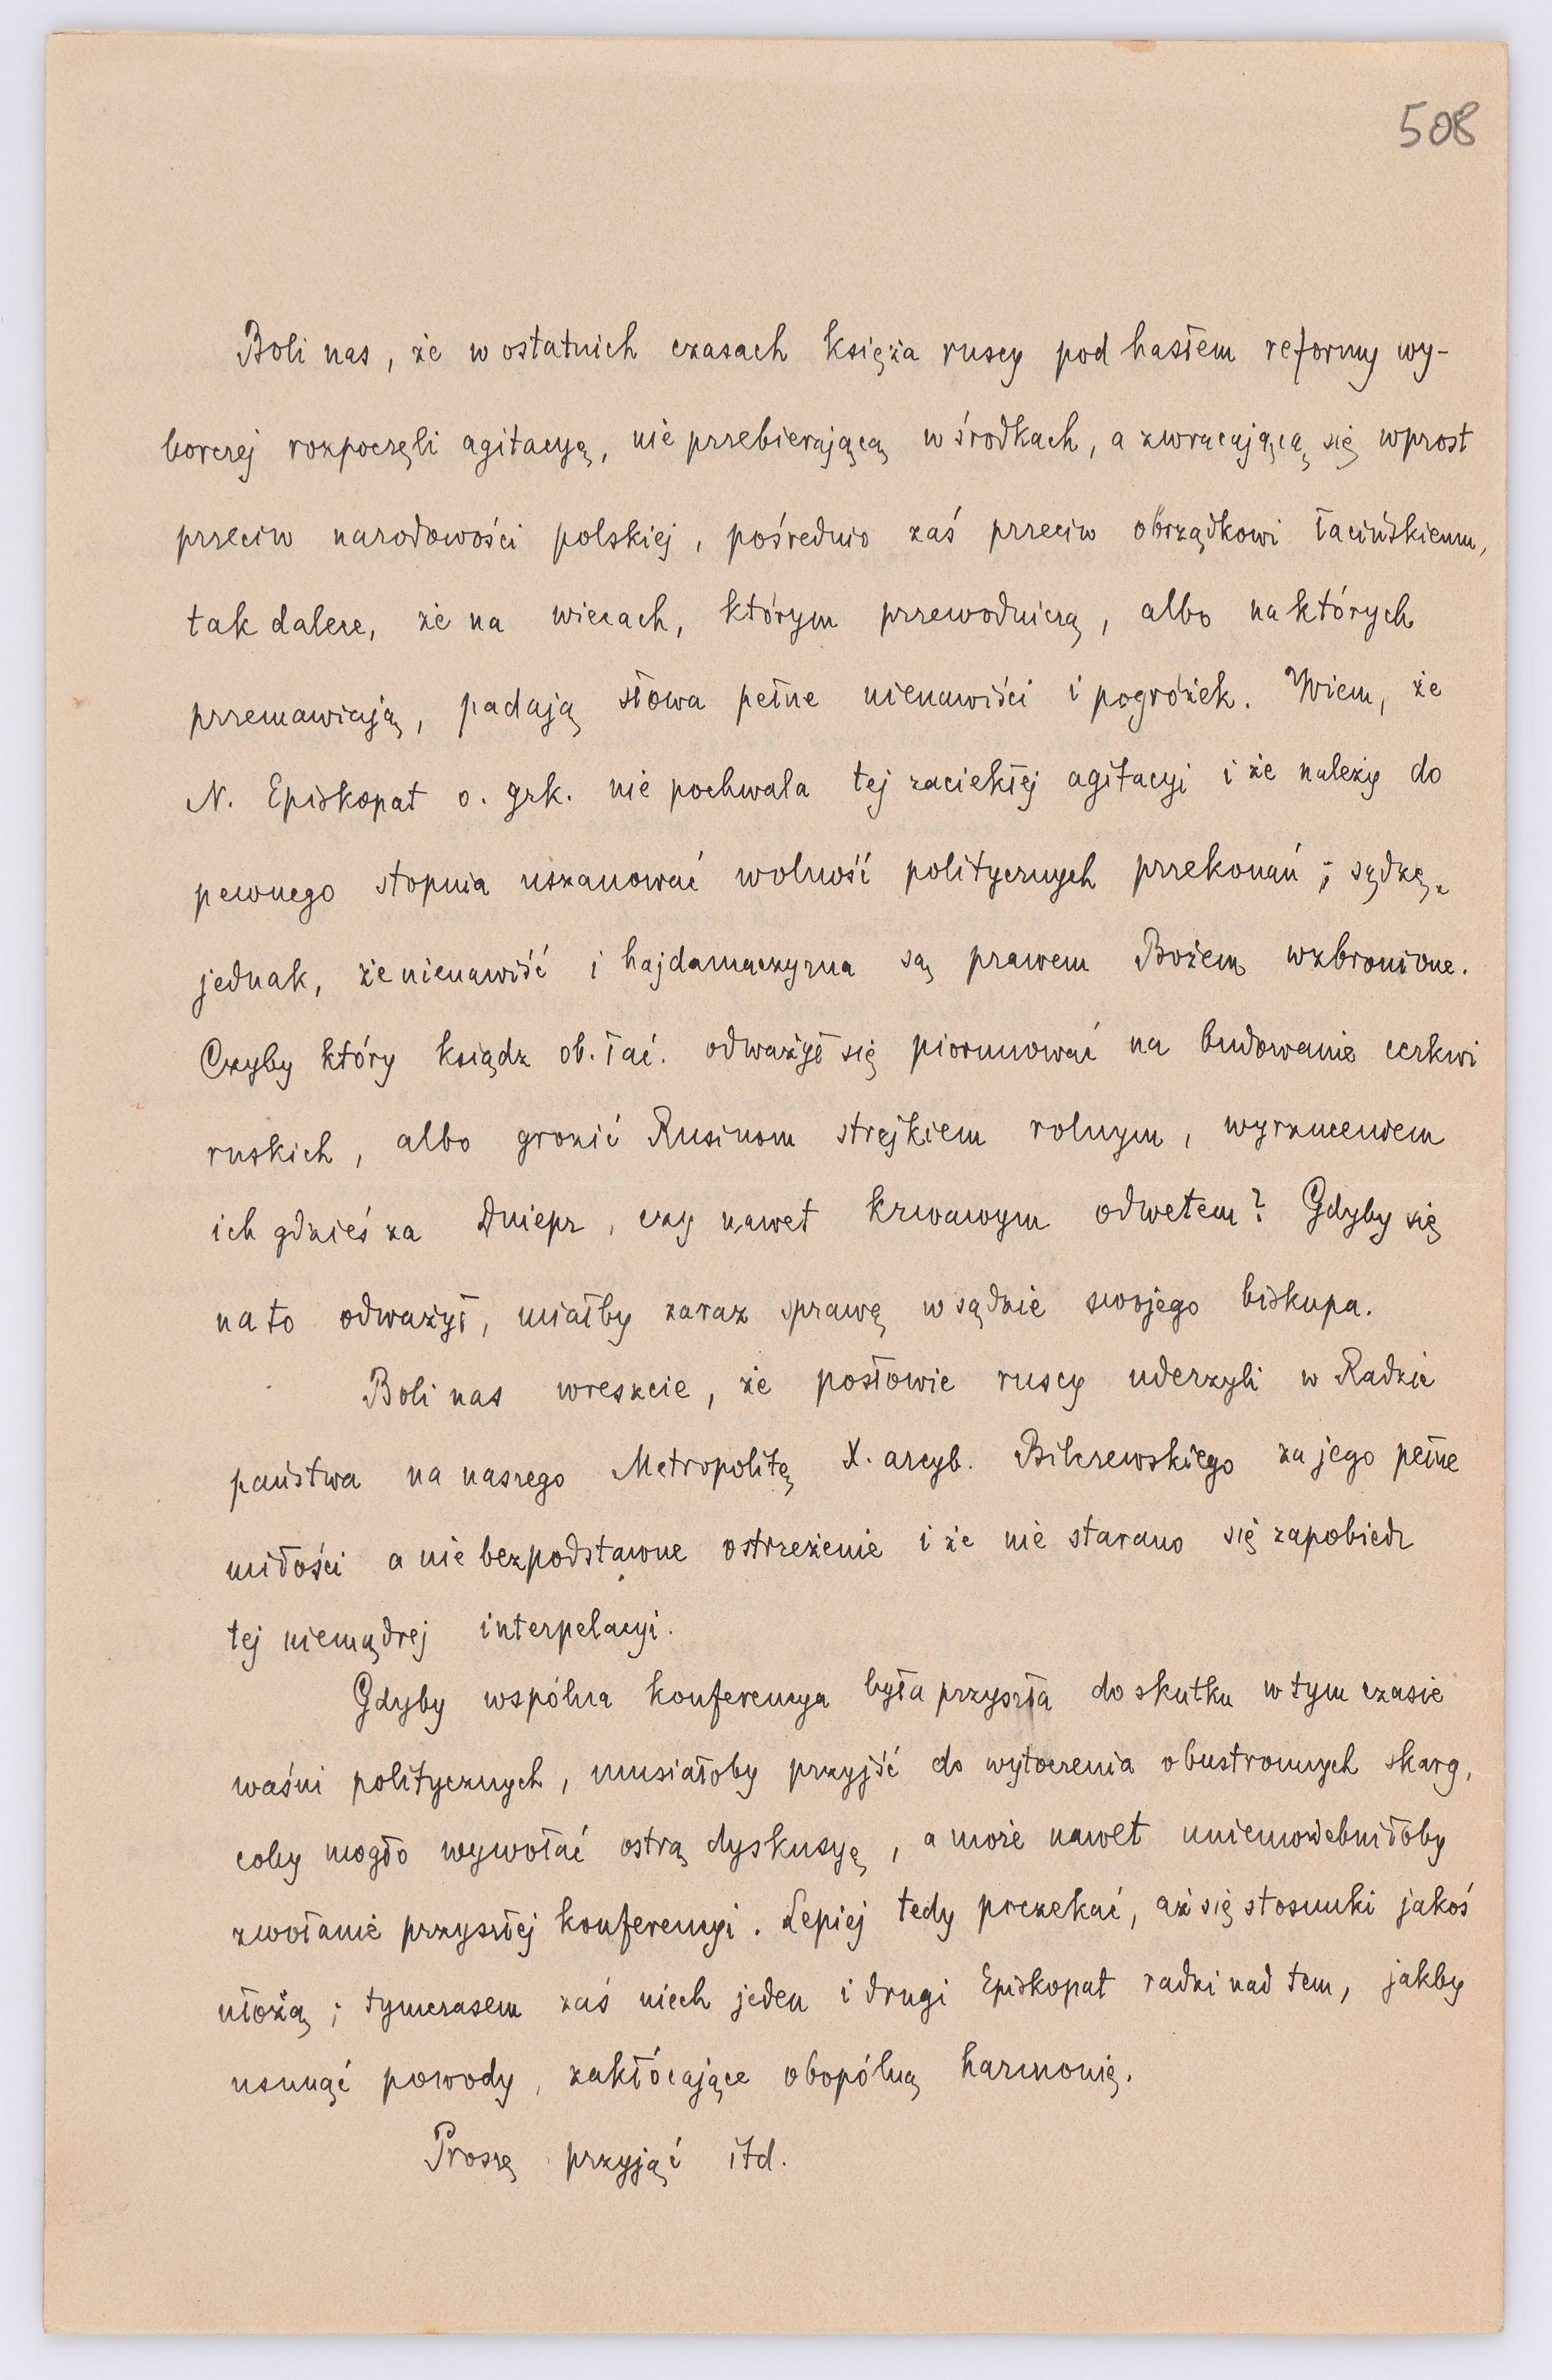 508
Boli nas, że w ostatnich czasach księża ruscy pod hasłem reformy wy-
borczej rozpoczęli agitacyę, nie przebierającą w środkach, a zwracającą się wprost
przeciw narodowości polskiej, pośrednio zaś przeciw obrządkowi łacińskiemu,
tak dalece, że na wiecach, którym przewodniczą, albo na których
przemawiają, padają słowa pełne nienawiści i pogróżek. Wiem, że
N. Episkopat o. grk. nie pochwala tej zaciekłej agitacyi i że należy do
pewnego stopnia uszanować wolność politycznych przekonań; sądzę
jednak, że nienawiść i hajdamaczyzna są prawem Bożem wzbronione.
Czyby który ksiądz ob. łać. odważył się piorunować na budowanie cerkwi
ruskich, albo grozić Rusinom strejkiem rolnym, wyrzuceniem
ich gdzieś za Dniepr, czy nawet krwawym odwetem? Gdyby się
na to odważył, miałby zaraz sprawę w sądzie swojego biskupa.
Boli nas wreszcie, że posłowie ruscy uderzyli w Radzie
państwa na naszego Metropolitę X. arcyb. Bilczewskiego za jego pełne
miłości a nie bezpodstawne ostrzeżenie i że nie starano się zapobiedz
tej niemądrej interpelacyi.
Gdyby wspólna konferencya była przyszła do skutku w tym czasie
waśni politycznych, musiałoby przyjść do wytoczenia obustronnych skarg,
coby mogło wywołać ostrą dyskusyę, a może nawet uniemożebniłoby
zwołanie przyszłej konferencyi. Lepiej tedy poczekać, aż się stosunki jakoś
ułożą; tymczasem zaś niech jeden i drugi Episkopat radzi nad tem, jakby
usunąć powody, zakłócające obopólną harmonię.
Proszę przyjąć itd.